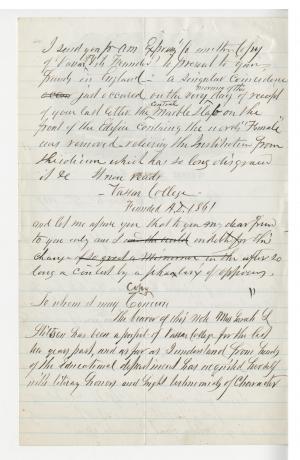 I send you pr Am Express to another Copy
of Vassar & its Founder to present to your
friends in England - a singular Coincidence
just occured on the very day of receipt
morning of the
of your last letter the Marble Slab on the
central
front of the Edifice containg the words "Female"
was removed relieving the Institution from
which has so long disgraced
it & It now reads
Vassar College
Founded A.D. 1861
and let me assure you that to you my dear friend
to you only am I indebted for this
change in the after so
long a contest by a phalanx of opposers.
Copy
To whom it may Concern
The bearer of this note Miss Sarah L
Stilson has been a pupil of Vassar College for the last
two years past, and as far as I understand from heads
of the Educational department has acquited herself
with literary honors and bright testimonials of Character